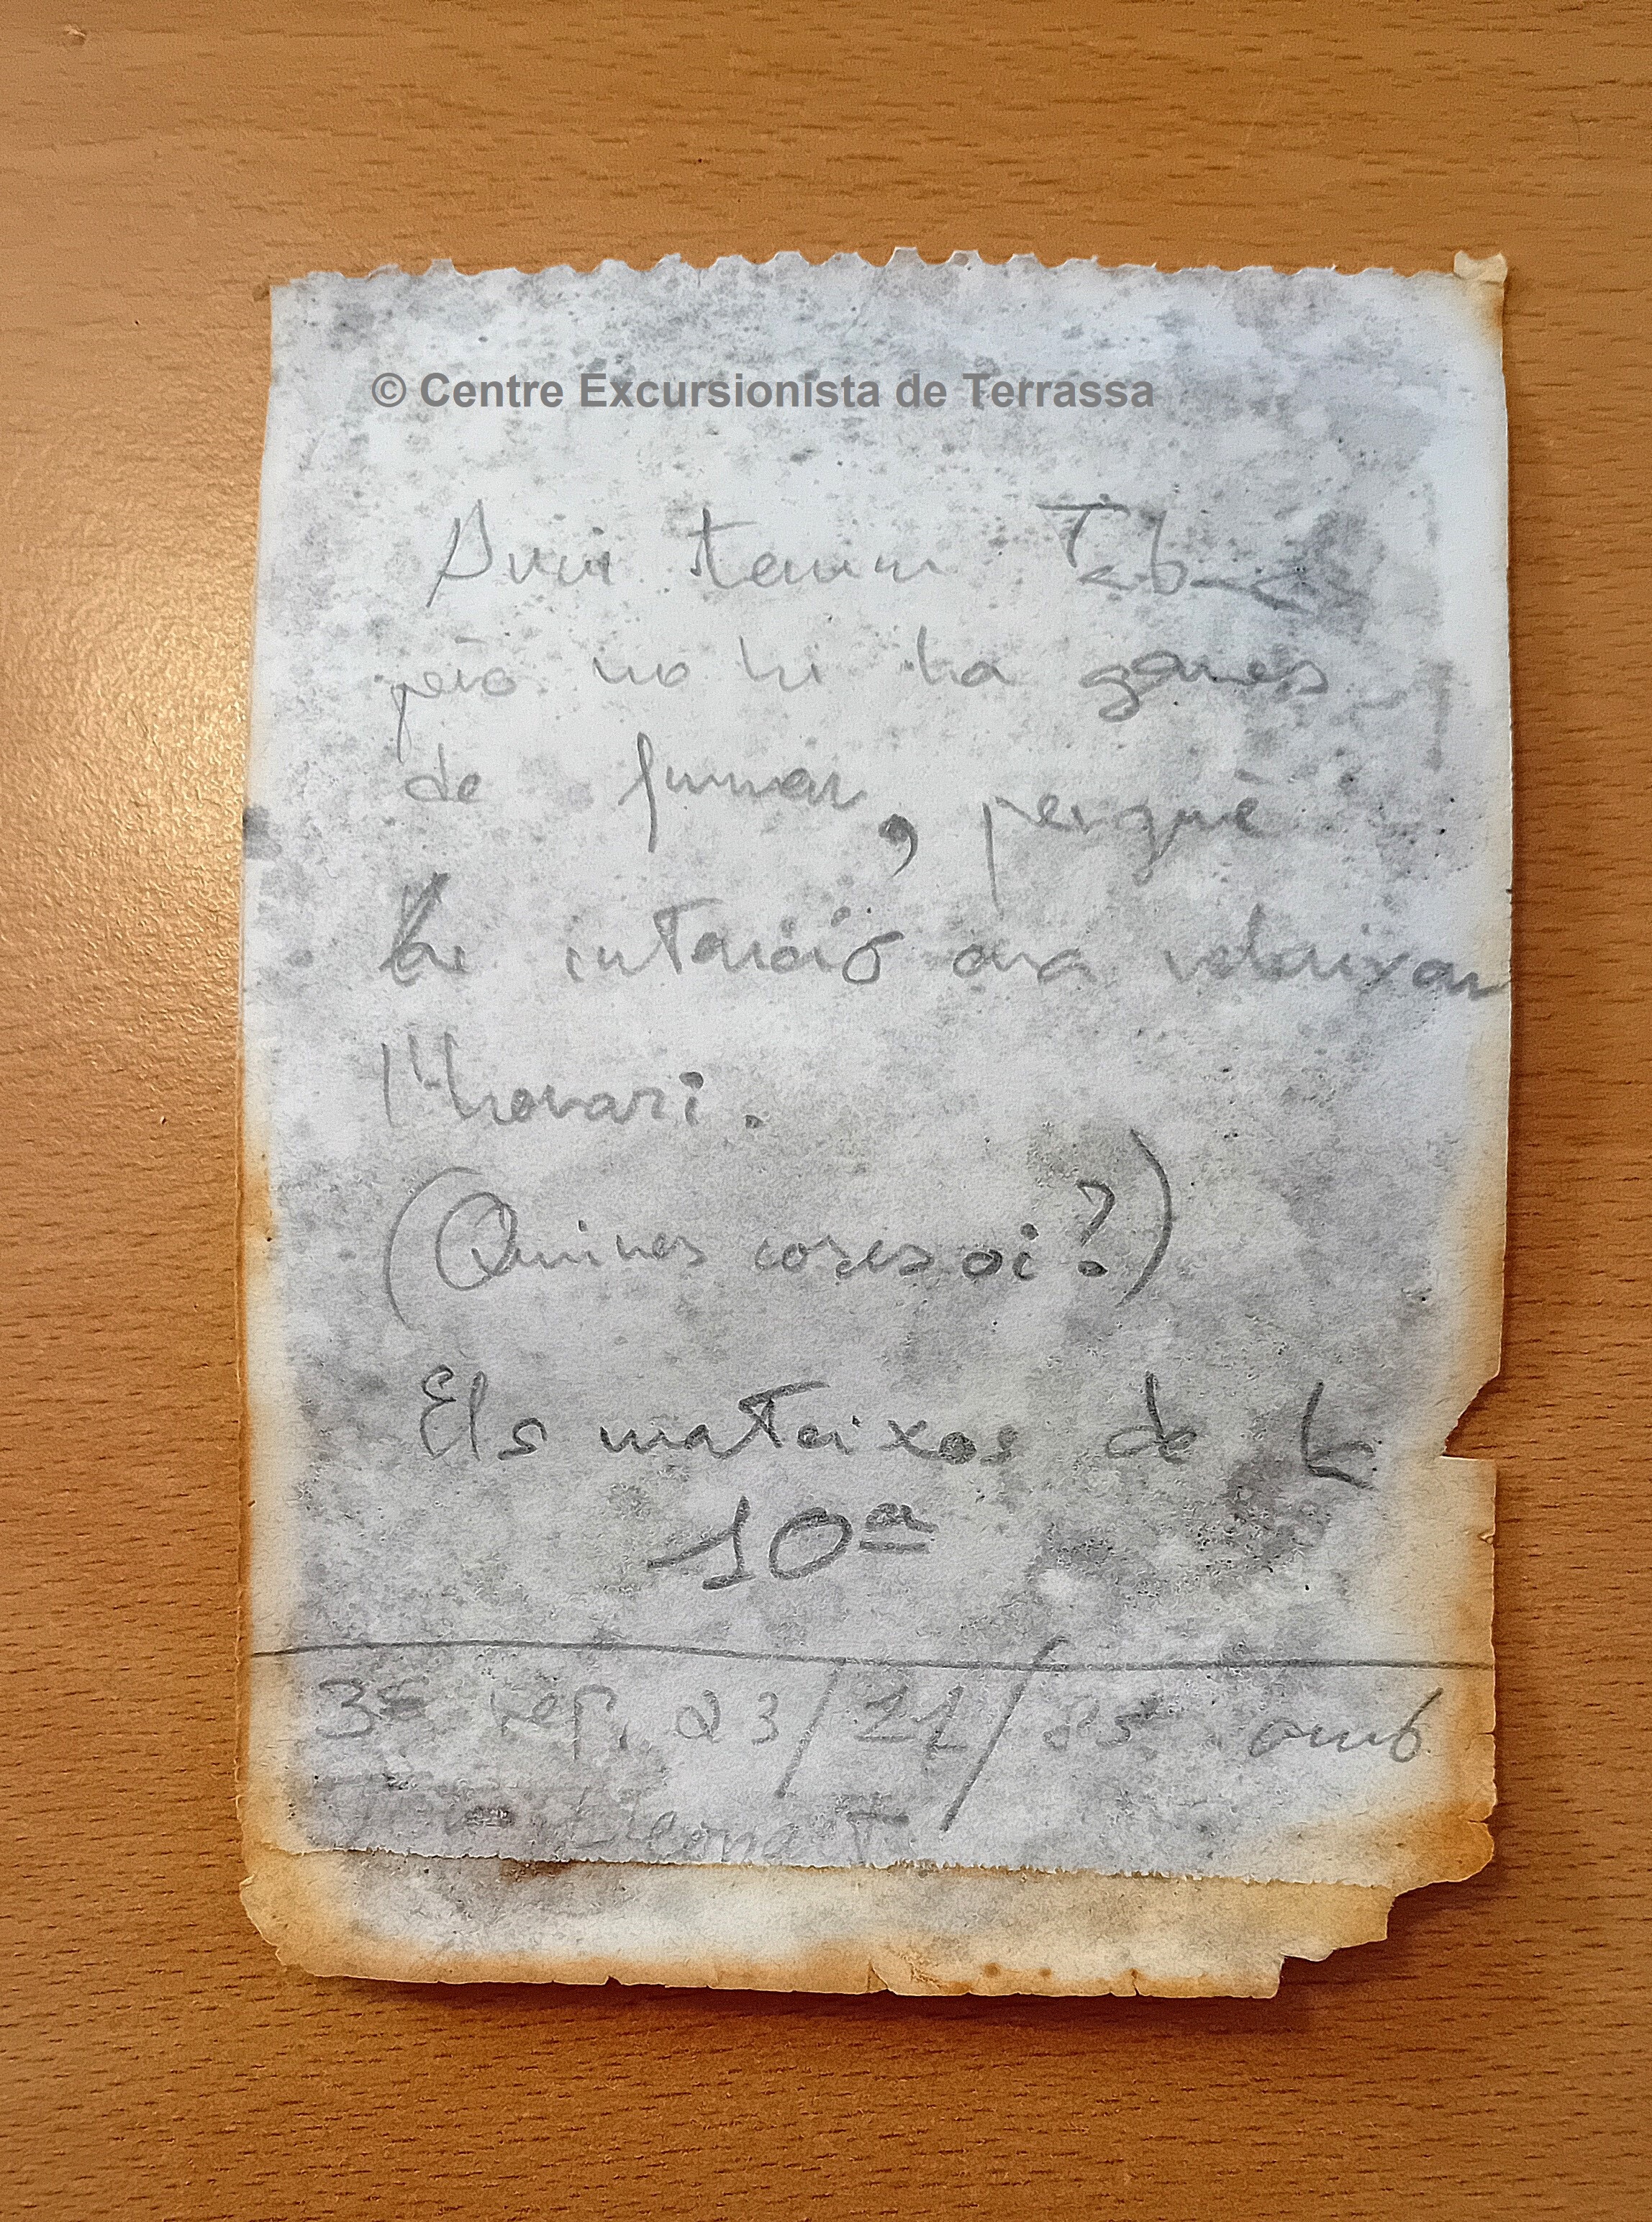 © Centre Excursionista de Terrassa
Avui tenim Tabac
però no hi ha ganes
de fumar, perquè
la intenció era rebaixar
l'horari.
(Quines coses oi?)
Els mateixos de la
10ª
3ª rep. 23/21/85 amb
Lleonart